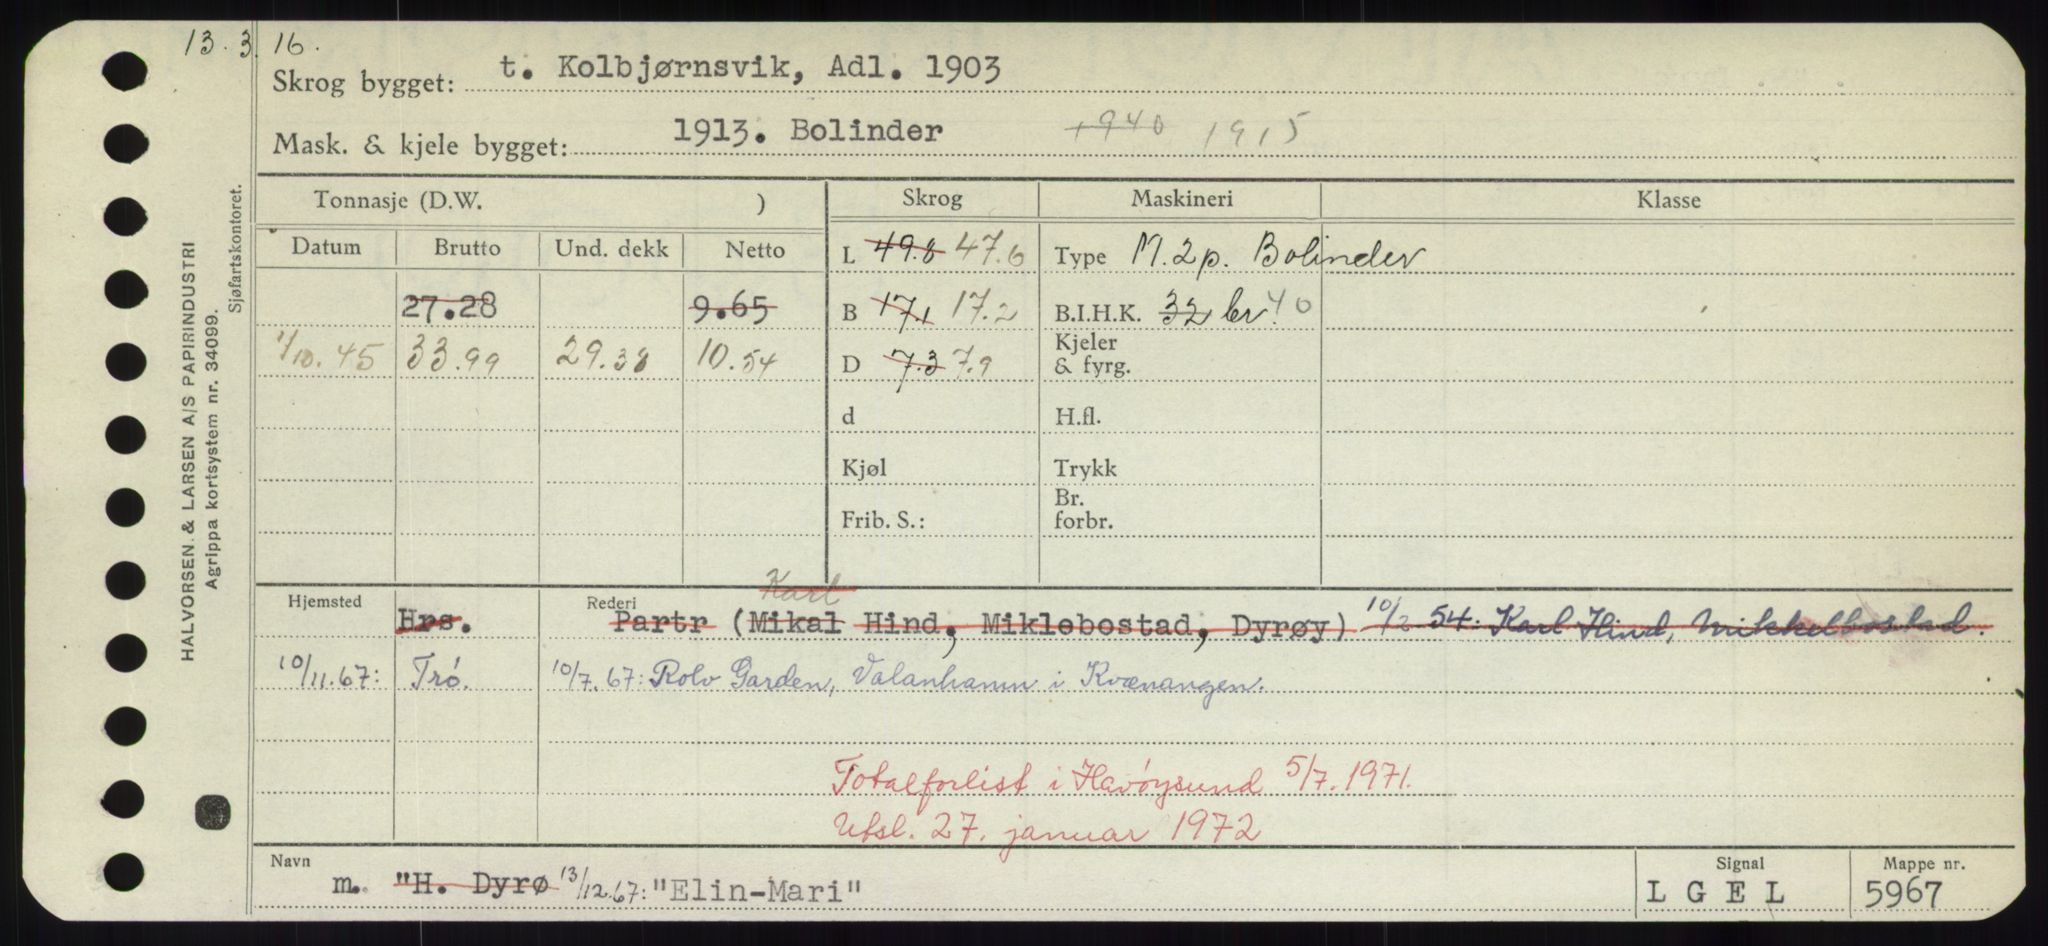 13.3.16.
Skrog bygget: t. Kolbjørnsvik, Adl. 1903
Mask. & kjele bygget: 1913. Bolinder 1940 1915
Tonnasje (D.W. ) Skrog Maskineri Klasse
Datum Brutto Und. dekk Netto L 49.8 47.6 Type M.2p. Bolinder
27.28 9.65 B 17.1 17.2 B.I.H.K. 32 br. 40
1/10.45 33.99 29.38 10.54 D 7.3 7.9 Kjeler & fyrg.
d H.fl.
Kjøl Trykk
Frib. S.: Br. forbr.
Karl
Hjemsted Hrs. Rederi Partr (Mikal Hind, Miklebostad, Dyrøy) 10/2 54: Karl Hind, Mikkelbostad.
10/11.67: Trö. 10/7.67: Rolv Garden, Valanhamn i Kvænangen.
Totalforlist i Havöysund 5/7.1971.
Utsl. 27. januar 1972
Navn m. "H. Dyrø 13/12.67: "Elin-Mari" Signal L G E L Mappe nr. 5967
HALVORSEN & LARSEN A/S PAPIRINDUSTRI
Agrippa kortsystem nr. 34099.
Sjøfartskontoret.